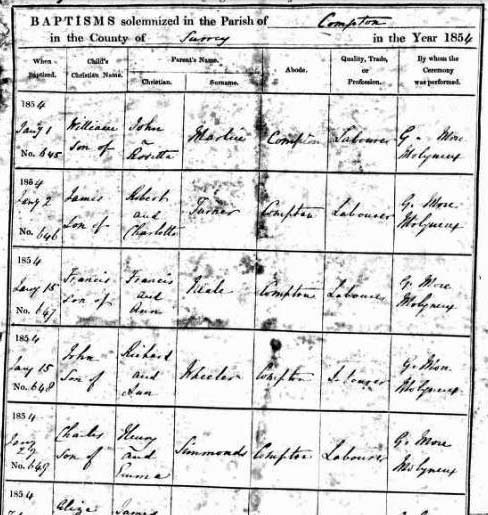 BAPTISMS solemnized in the Parish of Compton
in the County of Surrey in the Year 1854
When Baptized. Child's Christian Name. Parent's Name. Christian. Surname. Abode. Quality, Trade, or Profession. By whom the Ceremony was performed.
1854
Jany 1 William John Martin Compton Labourer G. More
No. 645 Son of Rosetta Molyneux
1854
Jany 2 James Robert Turner Compton Labourer G. More
No. 646 Son of and Charlotte Molyneux
1854
Jany 15 Francis Francis Neale Compton Labourer G. More
No. 647 Son of and Ann Molyneux
1854
Jany 15 John Richard Wheeler Compton Labourer G. More
No. 648 Son of and Ann Molyneux
1854
Jany 29 Charles Henry Simmonds Compton Labourer G. More
No. 649 Son of and Emma Molyneux
1854
James